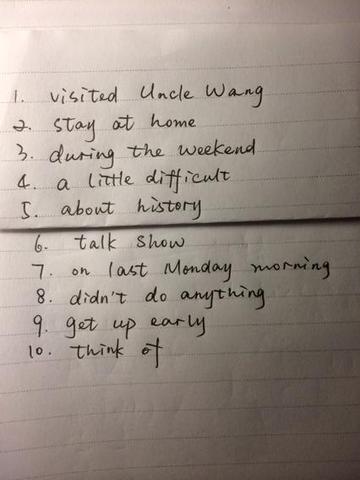 1. visited Uncle Wang
2. stay at home
3. during the weekend
4. a little difficult
5. about history
6. talk show
7. on last Monday morning
8. didn't do anything
9. get up early
10. think of